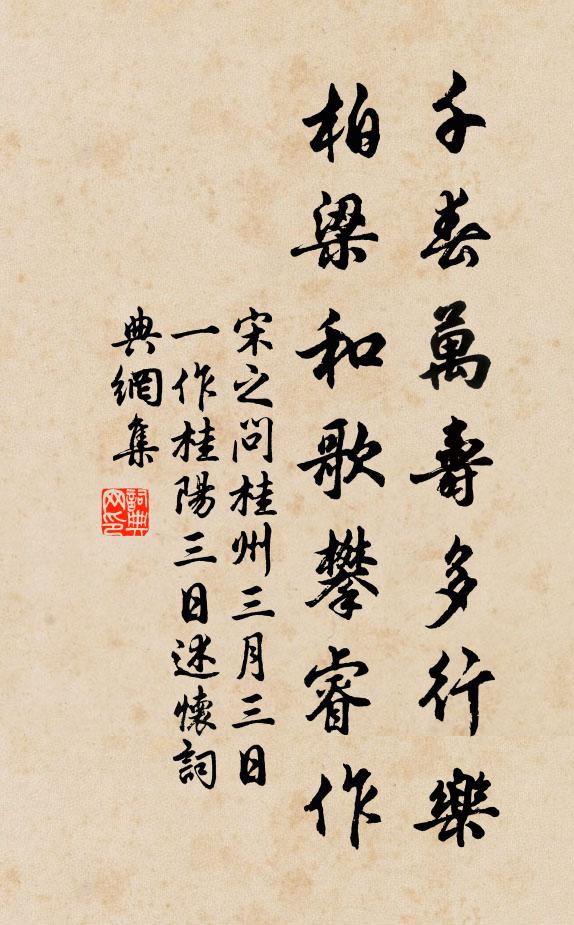 千春萬壽多行樂
柏梁和歌攀睿作
宋之問桂州三月三日
一作桂陽三日述懷詞
典網集
詞典網印